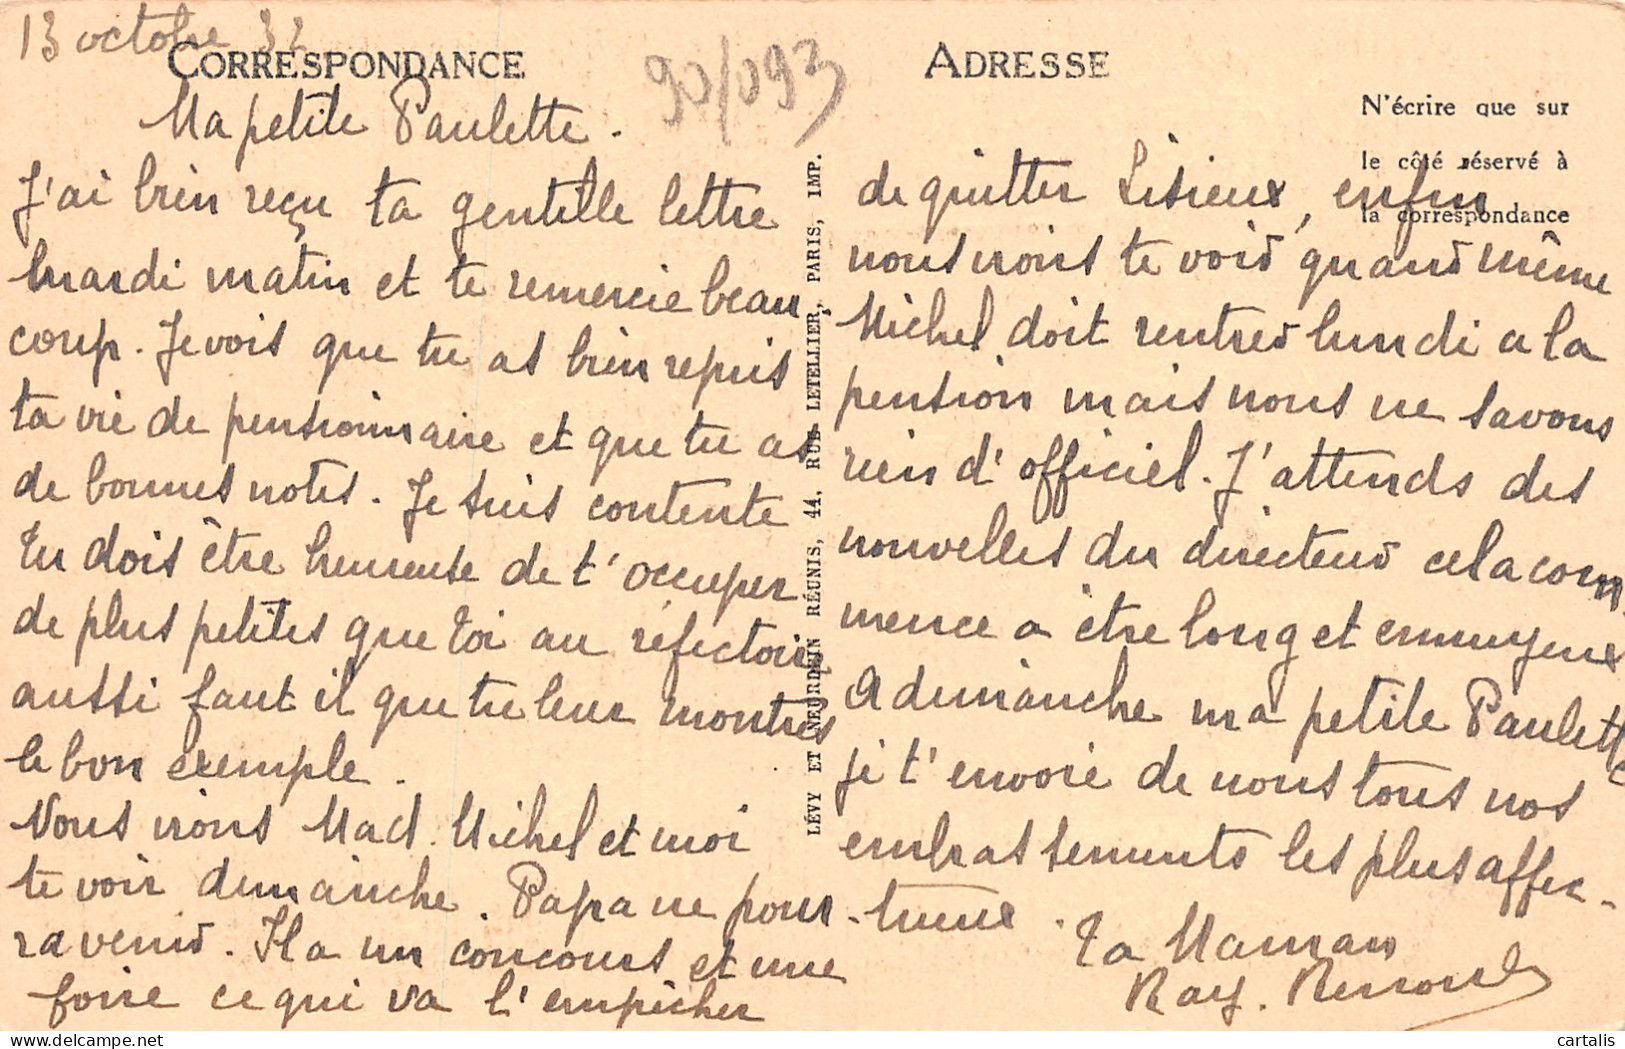 13 octobre 32
CORRESPONDANCE
90/093
Ma petite Paulette.
J'ai bien reçu ta gentille lettre
mardi matin et te remercie beau
coup. Je vois que tu as bien repris
ta vie de pensionnaire et que tu as
de bonnes notes. Je suis contente
Tu dois être heureuse de t'occuper
de plus petites que toi au réfectoire
aussi faut il que tu leur montres
le bon exemple.
Nous irons Mad. Michel et moi
te voir dimanche. Papa ne pour-
ra venir. Il a un concours et une
foire ce qui va l'empêcher
LÉVY ET NEURDEIN RÉUNIS, 44, RUE LETELLIER, PARIS, IMP.
ADRESSE
N'écrire que sur
le côté réservé à
la correspondance
de quitter Lisieux, enfin
nous irons te voir quand même
Michel doit rentrer lundi a la
pension mais nous ne savons
rien d'officiel. J'attends des
nouvelles du directeur cela com
mence a être long et ennuyeux
A dimanche ma petite Paulette
je t'envoie de nous tous nos
embrassements les plus affec-
tueux. Ta Maman
Ray.
cartalis
delcampe.net